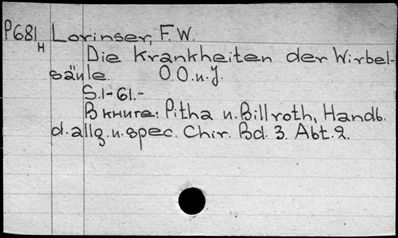 P681 Lorinser, F.W.
H
Die Krankheiten der Wirbel-
säule. O.O.u.J.
S.1-61.-
В книге: Pitha u. Billroth, Handb.
d. allg. u. spec. Chir. Bd. 3. Abt. 2.